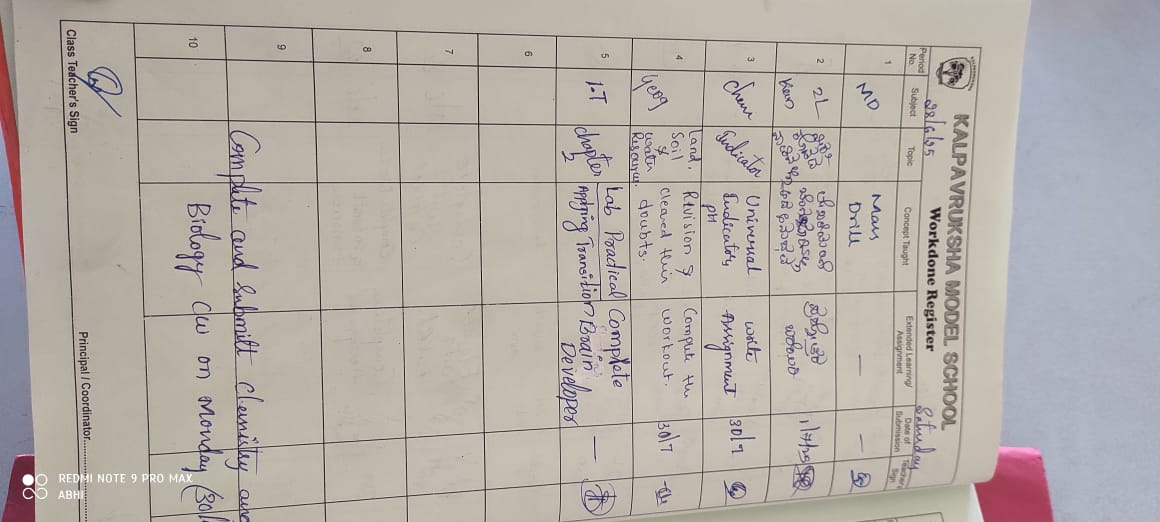 KALPAVRUKSHA MODEL SCHOOL
Workdone Register
28/6/25 Saturday
Period No. Subject Topic Concept Taught Extended Learning/ Assignment Date of Submission Teacher's Sign
1 MD Mass Drill — —
2 2L Kan 1/7/25
3 Chem Indicator Universal Indicators pH write Assignment 30/7
4 Geog Land, Soil & Water Resources. Revision & cleared their doubts. Compute the workout. 30/7
5 I.T chapter 3 Lab Practical Applying Transition Complete Brain Developer —
6
7
8
9 Complete and Submitt Chemistry and
10 Biology CW on Monday (30/
Class Teacher's Sign Principal / Coordinator
REDMI NOTE 9 PRO MAX
ABHI